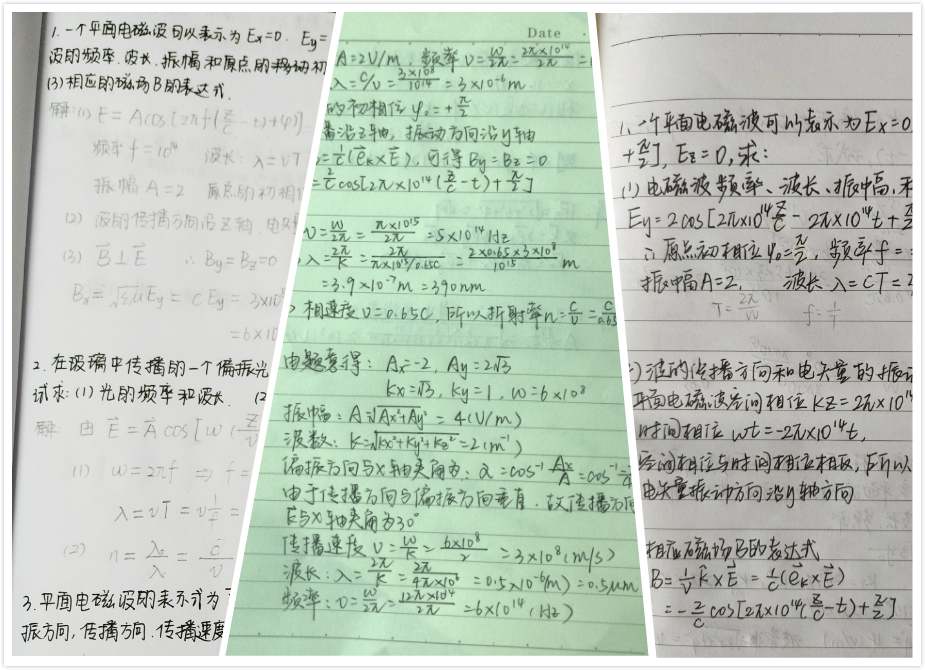 1. 一个平面电磁波可以表示为 Ex=0. Ey=
波的频率. 波长. 振幅和原点的
(3)相应的磁场B的表达式.
解:(1) E = A cos [2πf(z/c - t)+φ]
频率 f = 10¹⁴ 波长: λ = υT
振幅 A = 2 原点的初相
(2) 波的传播方向沿Z轴. 电矢
(3) B⊥E ∴ By=Bz=0
Bx= √εμ Ey = c Ey = 3×10⁸
=6×10
2. 在玻璃中传播的一个偏振光
试求: (1) 光的频率和波长. (2
解: 由 E = A cos [ω(z/υ
(1) ω = 2πf ⇒ f =
λ = υT = υ 1/f =
(2) n = λ₀/λ = c/υ
3. 平面电磁波的表示式为
振方向, 传播方向. 传播速度
Date
A=2V/m, 频率 υ=ω/2π=2π×10¹⁴/2π=
λ=c/υ=3×10⁸/10¹⁴=3×10⁻⁶m
的初相位 φ₀=+π/2
播沿Z轴, 振动方向沿y轴
=1/c(e_k×E), 可得 By=Bz=0
=2/c cos[2π×10¹⁴(z/c-t)+π/2]
υ=ω/2π=π×10¹⁵/2π=5×10¹⁴Hz
λ=2π/k=2π/π×10¹⁵/0.65c=2×0.65×3×10⁸/10¹⁵ m
=3.9×10⁻⁷m=390nm
相速度 υ=0.65c, 所以折射率n=c/υ=c/0.65
由题意得: Ax=-2, Ay=2√3
kx=√3, ky=1, ω=6×10⁸
振幅: A=√Ax²+Ay²=4(V/m)
波数: k=√kx²+ky²+kz²=2(m⁻¹)
偏振方向与x轴夹角为: α=cos⁻¹Ax/A=cos⁻¹
由于传播方向与偏振方向垂直, 故传播方向
k与x轴夹角为30°
传播速度 υ=ω/k=6×10⁸/2=3×10⁸(m/s)
波长: λ=2π/k=2π/4π×10⁶=0.5×10⁻⁶(m)=0.5μm
频率: υ=ω/2π=12π×10¹⁴/2π=6×10¹⁴(Hz)
1、一个平面电磁波可以表示为Ex=0
+π/2], Ez=0, 求:
(1) 电磁波频率、波长、振幅,
Ey=2cos[2π×10¹⁴z/c-2π×10¹⁴t+π/2
∴原点初相位φ₀=π/2, 频率f=
振幅A=2, 波长λ=cT=
T=2π/ω f=1/T
)波的传播方向和电矢量的振动
平面电磁波空间相位kz=2π×10¹⁴
时间相位ωt=-2π×10¹⁴t,
空间相位与时间相位相反, 所以
电矢量振动方向沿y轴方向
相应磁场B的表达式
B=1/υ k×E=1/c(e_k×E)
=-2/c cos[2π×10¹⁴(z/c-t)+π/2]